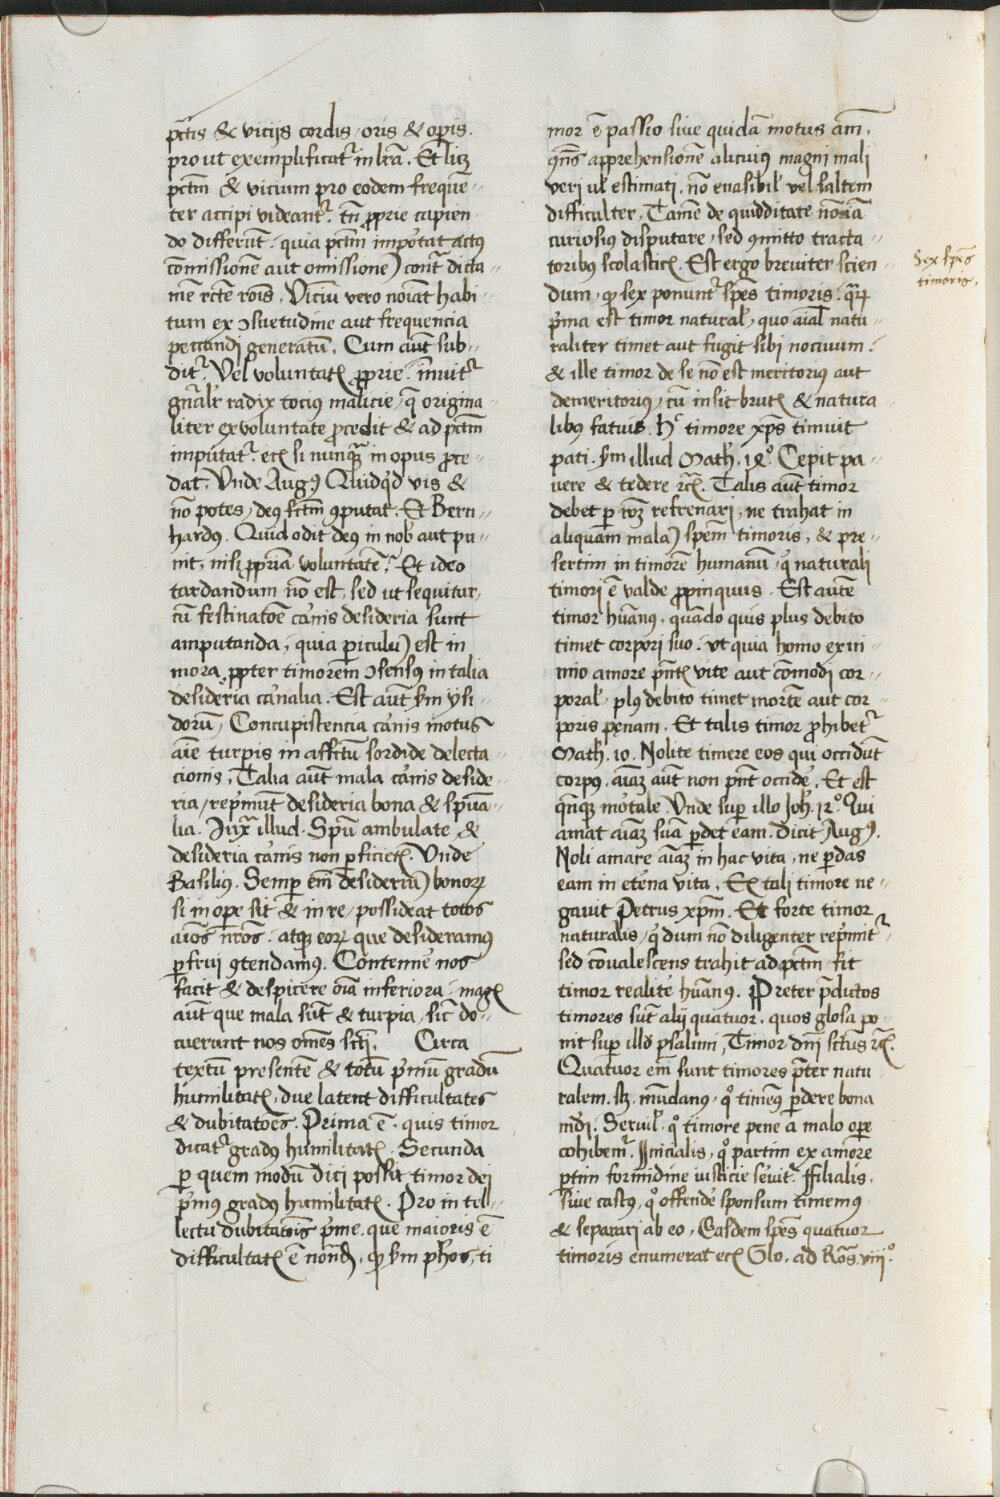 pctis & vicijs cordis / oris & opis.
pro ut exemplificat᷑ in lrā. Et licz
pctm̄ & vicium pro eodem freque-
ter accipi videant᷑. tn̄ ꝓprie capien-
do differūt. quia pctm̄ importat actus
cōmissionem aut omissionem contᷓ dicta-
mē rcte rōis. Viciū vero noīat habi-
tum ex ꝯsuetudine aut frequencia
peccandi generatū. Cum aūt sub-
dit᷑. Vel voluntatꝭ ꝓprie. innuit᷑
gn̄alr̄ radix tocius malicie, q̄ origina-
liter ex voluntate ꝓcedit & ad pctm̄
imputat᷑. eciā si nunqᷓ in opus ꝓce-
dat. Vnde Augꝰ Quidqd vis &
nō potes, deꝰ fctm̄ ꝯputat. Et Bern-
hardꝰ. Quid odit deꝰ in nob aut pu-
nit, nisi ꝓpriā voluntatē. Et ideo
tardandum nō est, sed ut sequitur,
cū festinatōe carnis desideria sunt
amputanda, quia ꝑiculum est in
mora ꝓpter timorem ꝯsensꝰ in talia
desideria carnalia. Est aūt scdm ysi-
dorū, Concupiscencia carnis motus
aīe turpis in affctū sordide delecta-
cionis. Talia aūt mala carnis deside-
ria / reprimūt desideria bona & spūa-
lia. Juxta illud. Spū ambulate, &
desideria carnis non ꝑficietis. Vnde
Basiliꝰ. Semꝑ em̄ desideriū bonoꝝ
si in ope sit & in re, possideat totos
aīos nrōs. atqꝫ eoꝝ que desideramꝰ
ꝑfrui ꝯtendamꝰ. Contemne nos
facit & despicere oīa inferiora. magꝭ
aūt que mala sūt & turpia, sic do-
cuerunt nos omēs scti. Circa
textū presentē & totū pmū gradū
humilitatꝭ, due latent difficultates
& dubitatoēs. Prima ē. quis timor
dicat᷑ gradus humilitatꝭ. Secunda
ꝑ quem modū dici possit timor dei
pmus gradus humilitatꝭ. Pro intel-
lectu dubitatōis prime, que maioris ē
difficultatꝭ ē notand, ꝙ scdm phos, ti
mor ē passio siue quidā motus anī,
ꝯn̄s apprehensionē alicuiꝰ magni mali
veri ul̄ estimati, nō euasibil̓ vel saltem
difficulter. Tamē de quidditate nō iā
curiosiꝰ disputare, sed ꝯmitto tracta-
toribus scolasticꝭ. Est ergo breuiter scien-
dum, ꝙ sex ponunt᷑ spēs timoris. quaꝝ
pma est timor natural̓, quo aīal natu-
raliter timet aut fugit sibi nociuum.
& ille timor de se nō est meritorius aut
demeritoriꝰ, cū insit brutꝭ & natura-
libꝰ fatuis. Hoc timore xp̄s timuit
pati. scdm illud Math. 18°. Cepit pa-
uere & tedere ꝛc̄. Talis aūt timor
debet ꝑ rōꝫ refrenari, ne trahat in
aliquam malam spem̄ timoris, & pre-
sertim in timorē humanū, q naturali
timori ē valde ꝓpinquus. Est autē
timor hūanꝰ, quādo quis plus debito
timet corpori suo. vt quia homo ex ni-
mio amore pn̄tꝭ vite aut cōmodi cor-
poral̓, plꝰ debito timet mortē aut cor-
poris penam. Et talis timor ꝓhibet᷑
Math. 10. Nolite timere eos qui occidūt
corpꝰ, aīaꝫ aūt non pn̄t occide. Et est
qn̄qꝫ mortale. Vnde suꝑ illo Joh. 12° Qui
amat aīaꝫ suā ꝑdet eam. dicit Augꝰ.
Noli amare aīaꝫ in hac vita, ne ꝑdas
eam in eterna vita. Ex tali timore ne-
gauit Petrus xp̄m. Et forte timor
naturalis, q dum nō diligenter reprimit᷑
sed cōualescens trahit ad pctm̄ fit
timor realiter hūanꝰ. Preter pdictos
timores sūt alij quatuor, quos glosa po-
nit suꝑ illd psalmi, Timor dn̄i sctus ꝛc̄.
Quatuor em̄ sunt timores pter natu-
ralem. scꝫ mūdanus, q° timemꝰ ꝑdere bona
mūdi. Seruil̓, q° timore pene a malo oꝑe
cohibemur. Inicialis, q° partim ex amore
ꝑtim formidine iusticie seruit᷑. Filialis,
siue castus, q° offende sponsum timemꝰ
& separari ab eo. Easdem spēs quatuor
timoris enumerat eciā Glo. ad Rōs. viii°.
Sex spēs
timoris.